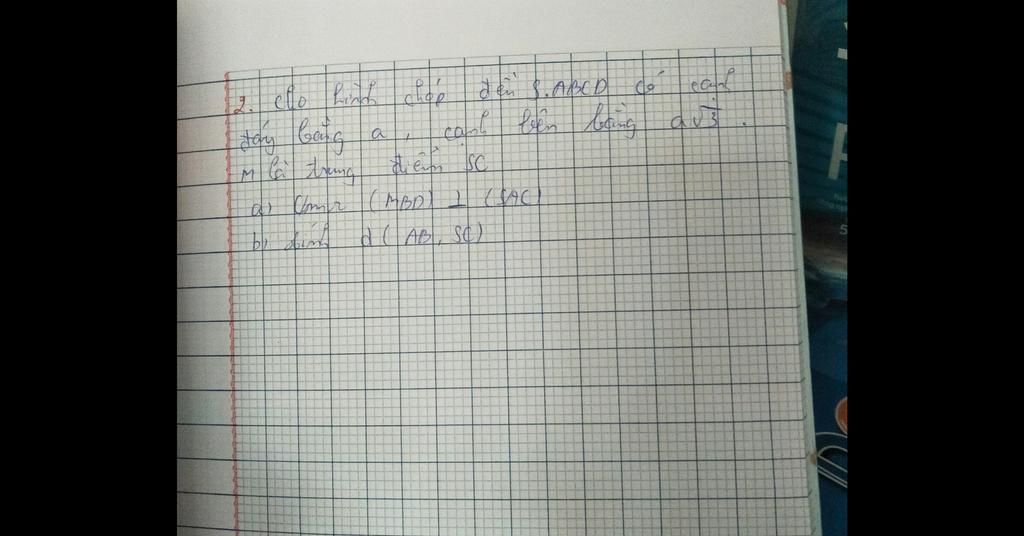 2. Cho hình chóp đều S.ABCD có cạnh
đáy bằng a, cạnh bên bằng a√3.
M là trung điểm SC
a) Cmr (MBD) ⊥ (SAC)
b) tính d(AB, SC)